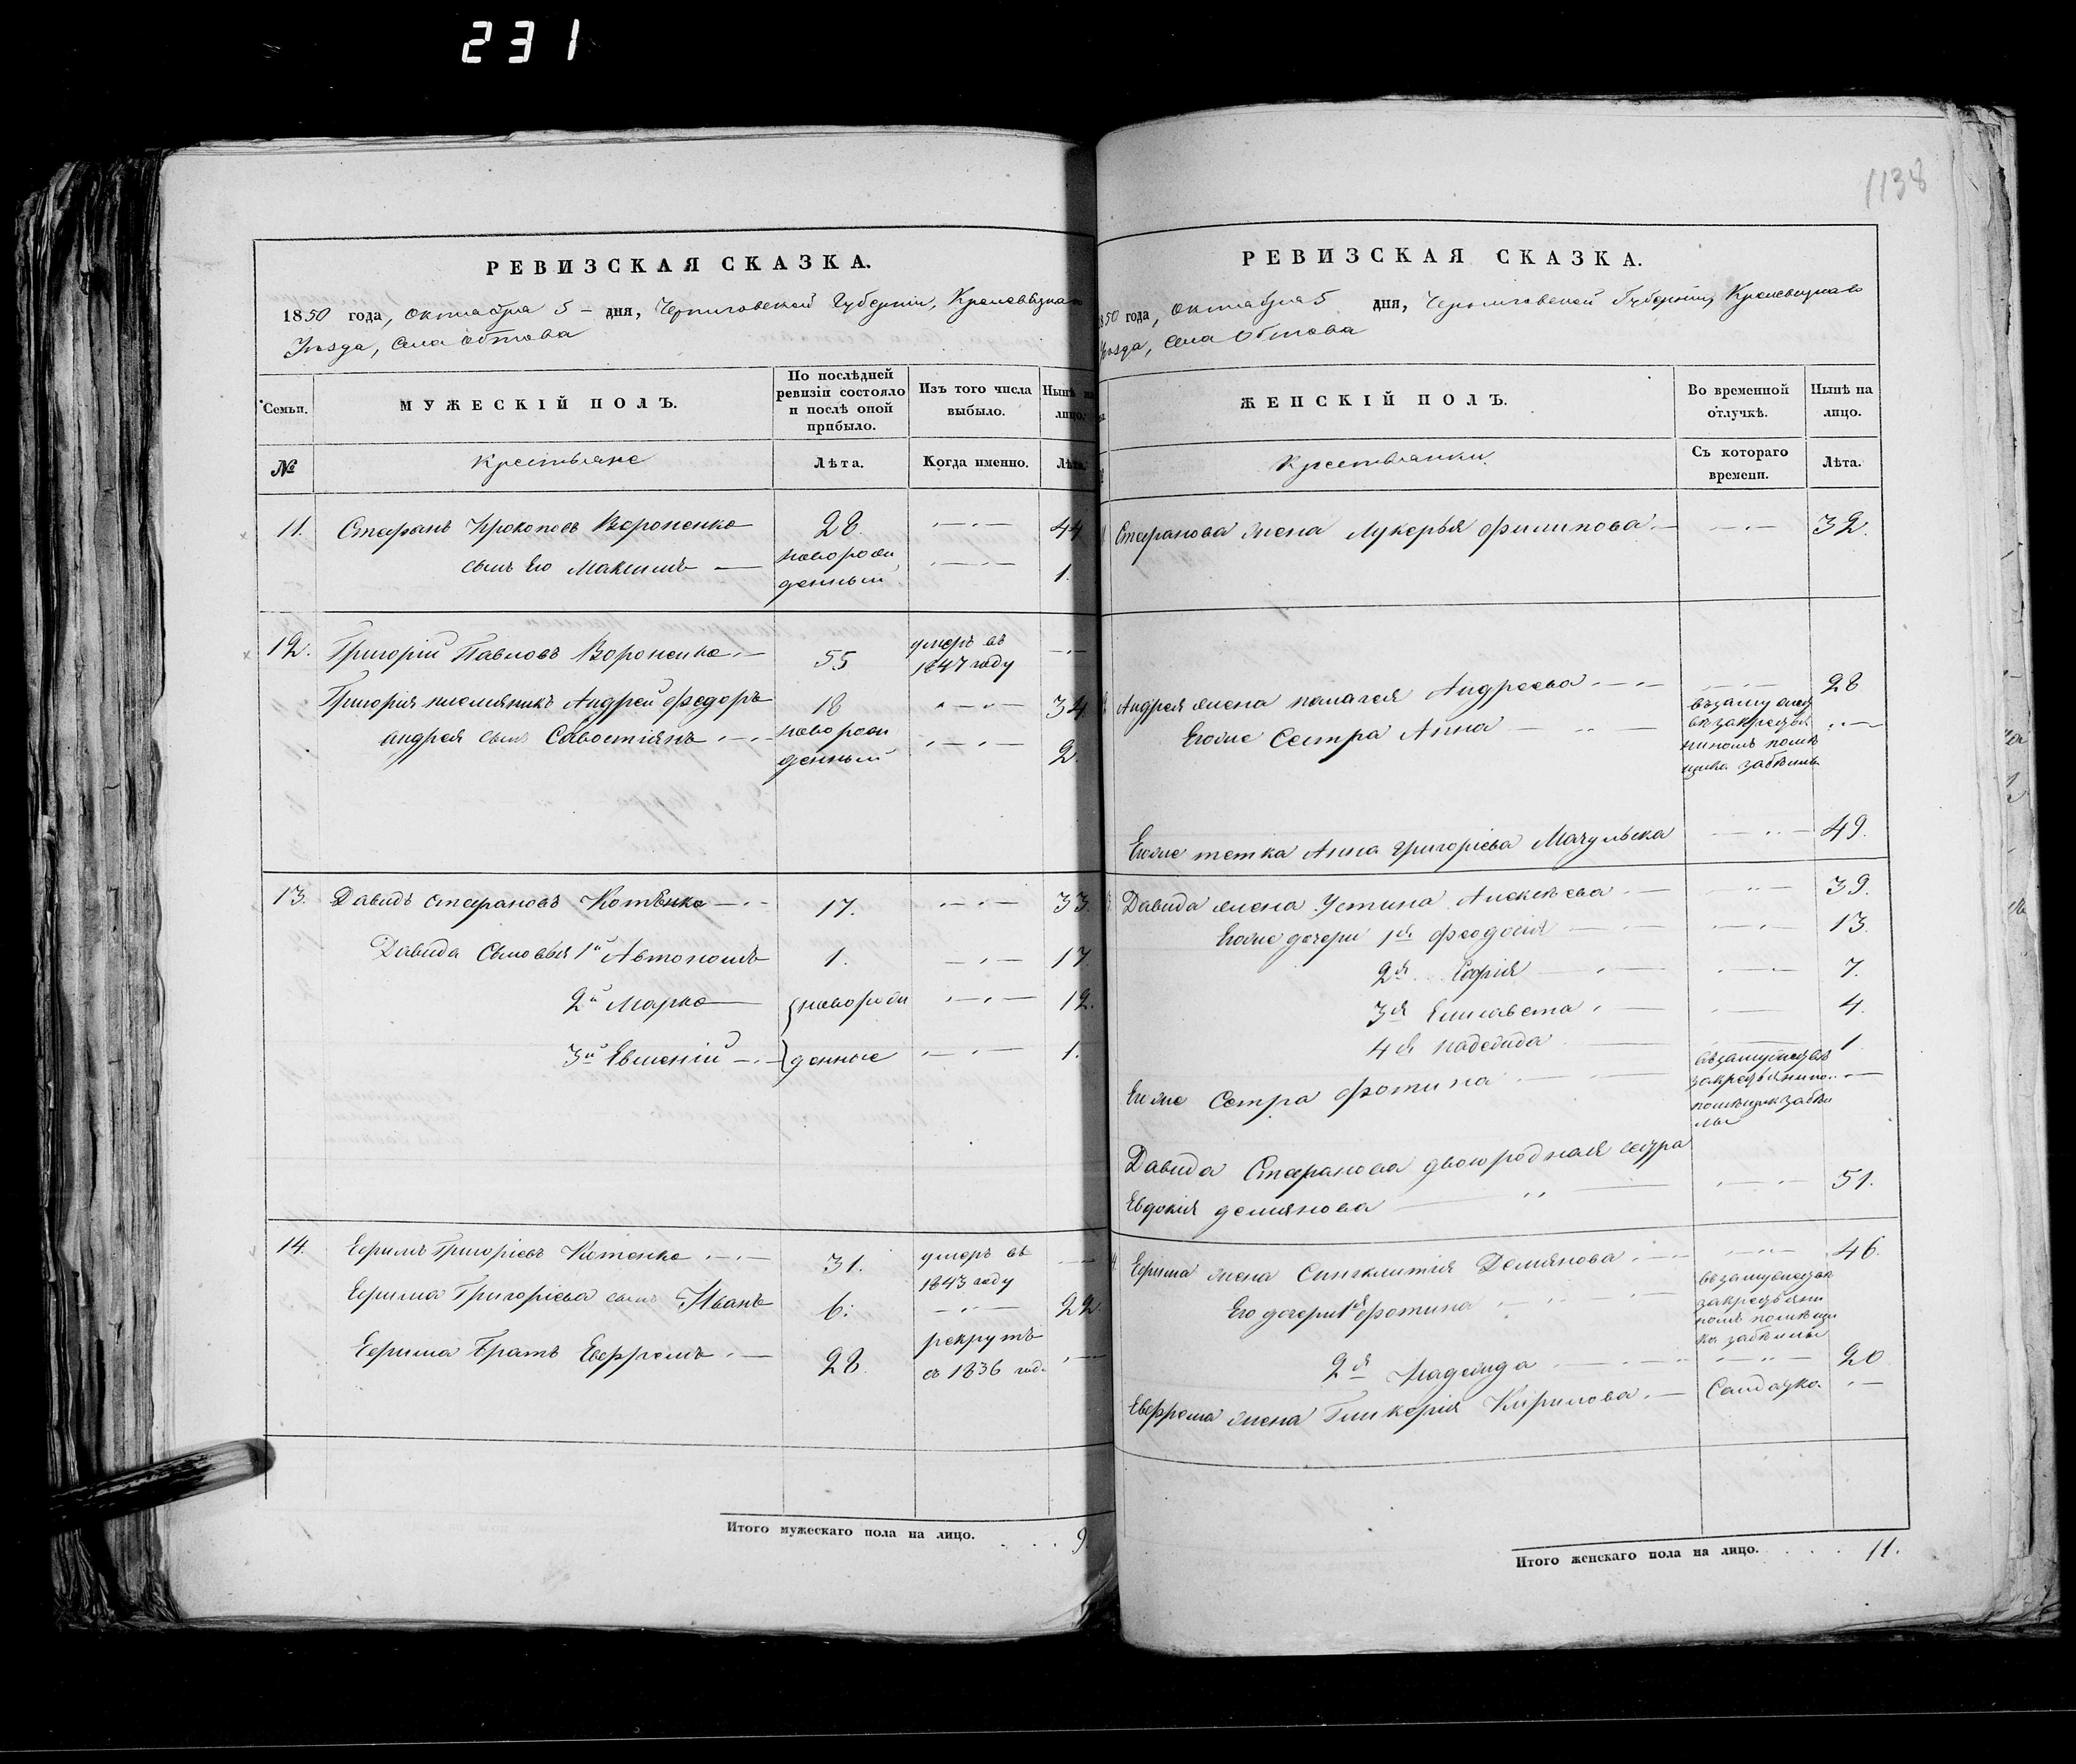 231
1138
РЕВИЗСКАЯ СКАЗКА.
1850 года, октября 5 - дня, Черниговской Губернии, Кролевецкаго
Уезда, села Обтова
Семьи.
МУЖЕСКІЙ ПОЛЪ.
По послѣдней
ревизіи состояло
и послѣ оной
прибыло.
Изъ того числа
выбыло.
Нынѣ на
лицо.
№
Крестьяне
Лѣта.
Когда именно.
Лѣта.
11. Стефанъ Прокоповъ Вороненко 28. 44
сынъ Его Максимъ новорож
денный 1.
12. Григорій Павловъ Вороненко 55 умеръ въ
1847 году
Григорія племяникъ Андрей Федоръ 18 34.
Андрея сынъ Савостіянъ новорож
денный 2.
13. Давидъ Стефановъ Котенко 17. 33.
Давида Сыновья 1й Автономъ 1. 17
2й Марко новорож 12.
3й Евменій денные 1.
14. Ефимъ Григоріевъ Котенко 31. умеръ въ
1843 году
Ефима Григоріева сынъ Иванъ 6. 22
Ефима Братъ Евфремъ 28. рекрутъ
съ 1836 года
Итого мужескаго пола на лицо. . . . 9.
РЕВИЗСКАЯ СКАЗКА.
1850 года, октября 5 дня, Черниговской Губерніи, Кролевецкаго
Уезда, села Обтова
ЖЕНСКІЙ ПОЛЪ.
Во временной
отлучкѣ.
Нынѣ на
лицо.
Крестьянки.
Съ котораго
времени.
Лѣта.
Стефанова жена Лукерья Филипова 32.
Андрея жена Палагея Андреева 28
Егоже Сестра Анна
Егоже тетка Анна Григоріева Мачульска 49.
Давида жена Устина Алексѣева 39.
Егоже дочери 1я Феодосія 13.
2я Софія 7.
3я Елисавета 4.
4я Надежда 1
Егоже Сестра Фотина
Давида Стефанова двоюродная сестра
Евдокія Демянова 51.
Ефима жена Синклитія Демянова 46.
Его дочери 1я Фотина
2я Надежда 20
Евфрема жена Гликерія Кирилова Солдатка.
Итого женскаго пола на лицо. . . . . 11.